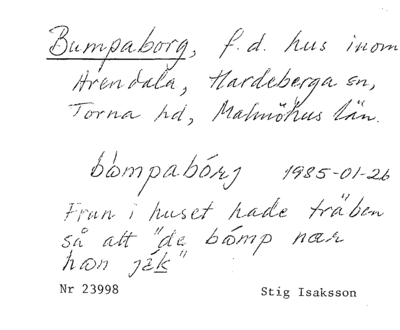 Bumpaborg, f.d. hus inom
Arendala, Hardeberga sn,
Torna hd, Malmöhus län.
bòmpabórj 1985-01-26
Frun i huset hade träben
så att "de bómp nær
hæn jék"
Nr 23998 Stig Isaksson